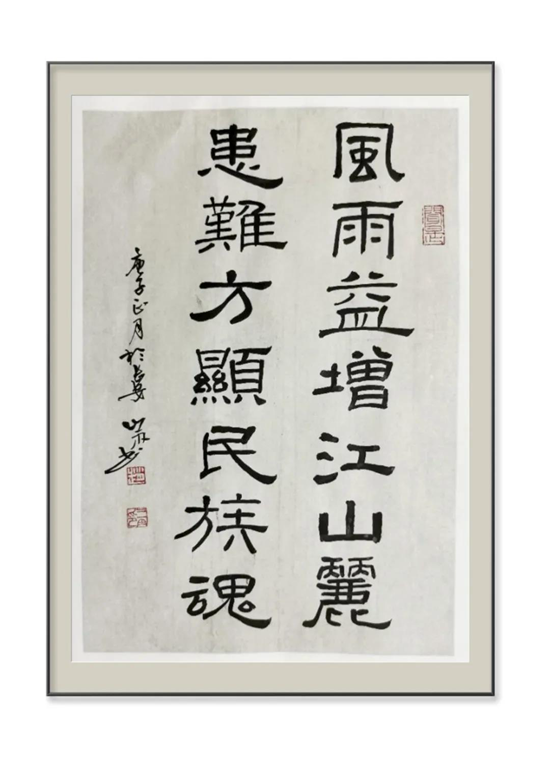 風雨益增江山麗
患難方顯民族魂
庚子正月於長安